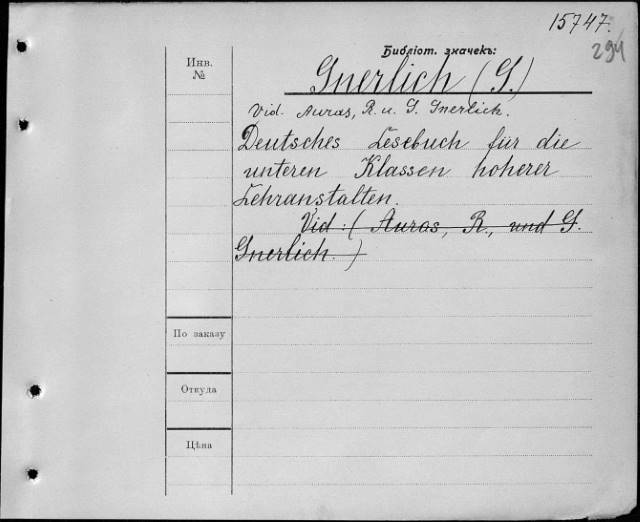 15747.
294
Библіот. значекъ:
Инв.
№
Gnerlich (G.)
Vid. Auras, R. u. G. Gnerlich.
Deutsches Lesebuch für die
unteren Klassen hoherer
Lehranstalten.
Vid: (Auras, R., und G.
Gnerlich.)
По заказу
Откуда
Цѣна